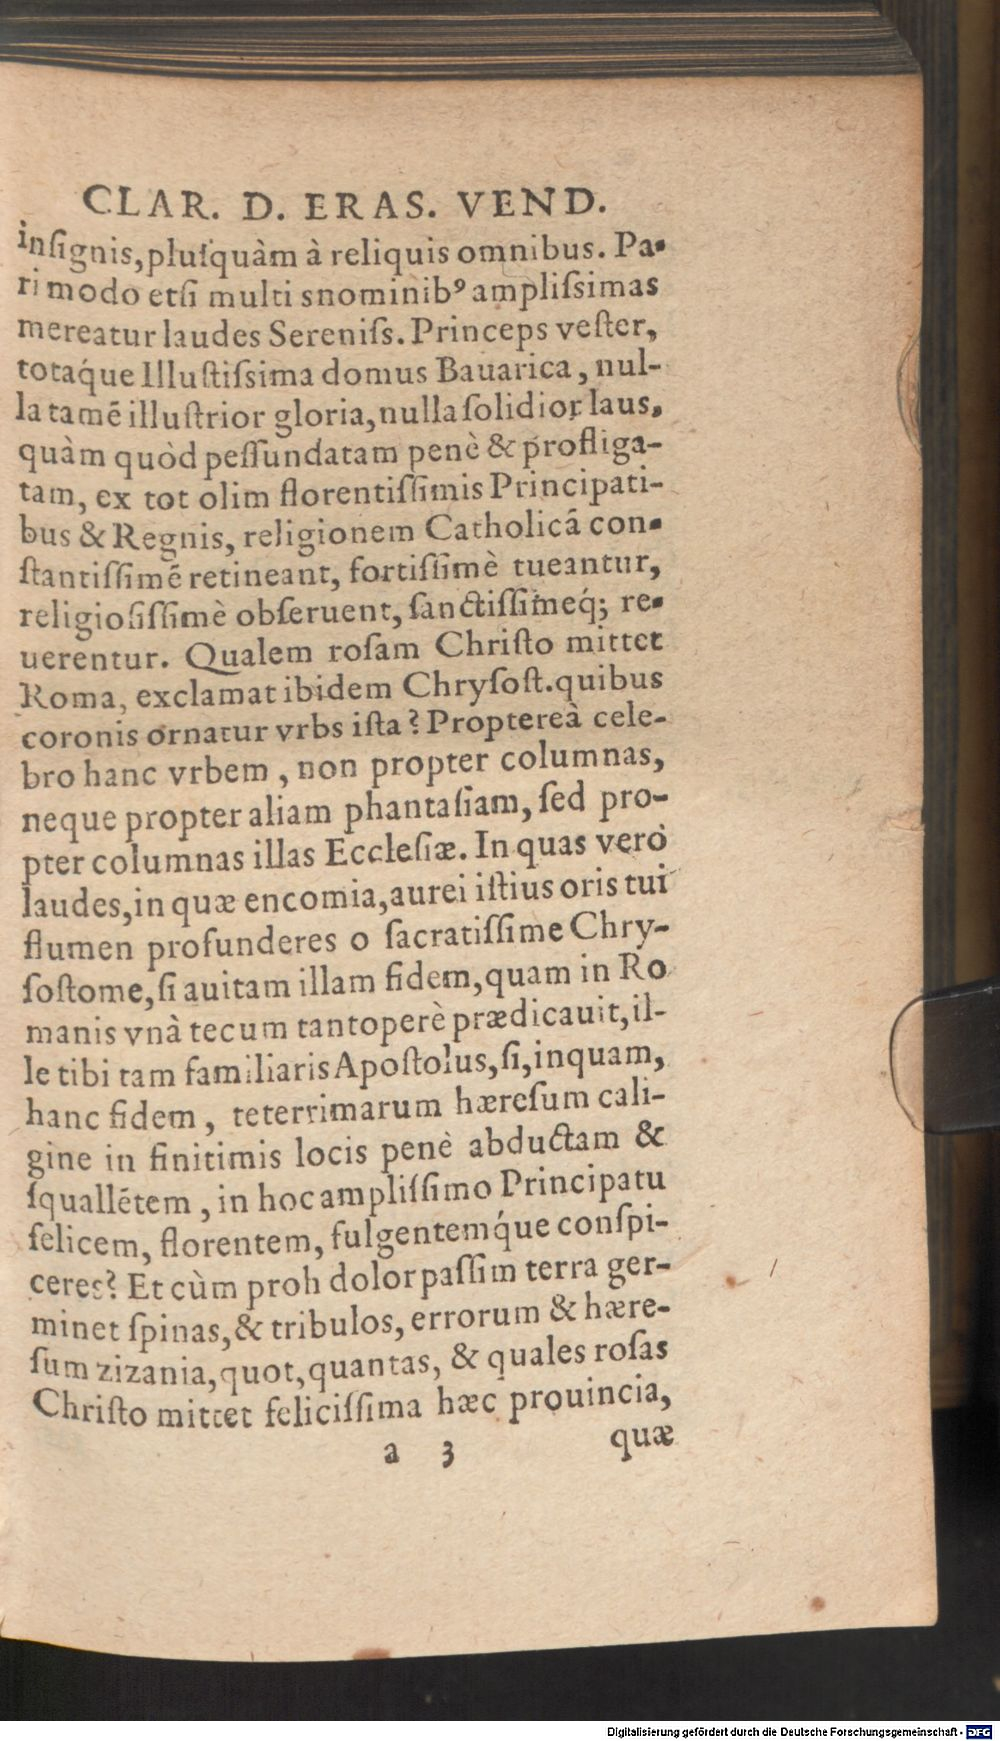 CLAR. D. ERAS. VEND.
inſignis, pluſquàm à reliquis omnibus. Pa-
ri modo etſi multi snominibꝰ ampliſsimas
mereatur laudes Sereniſs. Princeps veſter,
totáque Illuſtiſsima domus Bauarica, nul-
la tamē illuſtrior gloria, nulla ſolidior laus,
quàm quòd peſſundatam penè & profliga-
tam, ex tot olim florentiſsimis Principati-
bus & Regnis, religionem Catholicā con-
ſtantiſſimē retineant, fortiſſimè tueantur,
religioſiſſimè obſeruent, ſanctiſſimeq́; re-
uerentur. Qualem roſam Chriſto mittet
Roma, exclamat ibidem Chryſoſt. quibus
coronis ornatur vrbs iſta? Proptereà cele-
bro hanc vrbem, non propter columnas,
neque propter aliam phantaſiam, ſed pro-
pter columnas illas Eccleſiæ. In quas verò
laudes, in quæ encomia, aurei iſtius oris tui
flumen profunderes o ſacratiſſime Chry-
ſoſtome, ſi auitam illam fidem, quam in Ro
manis vnà tecum tantoperè prædicauit, il-
le tibi tam familiaris Apoſtolus, ſi, inquam,
hanc fidem, teterrimarum hæreſum cali-
gine in finitimis locis penè abductam &
ſquallētem, in hoc ampliſſimo Principatu
felicem, florentem, fulgentemq́ue conſpi-
ceres? Et cùm proh dolor paſſim terra ger-
minet ſpinas, & tribulos, errorum & hære-
ſum zizania, quot, quantas, & quales roſas
Chriſto mittet feliciſſima hæc prouincia,
a 3 quæ
Digitalisierung gefördert durch die Deutsche Forschungsgemeinschaft - DFG